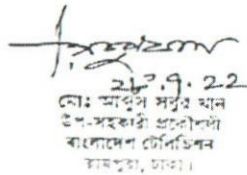 ২৮.৭.২২
মোঃ আব্দুস সবুর খান
উপ-সহকারী প্রকৌশলী
বাংলাদেশ টেলিভিশন
রামপুরা, ঢাকা।